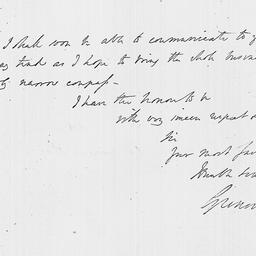 I shall soon be able to communicate to y
as I hope to bring the whole
narrow compass -
I have the honour to be
with very sincere respect
Sir
Your most
Humble